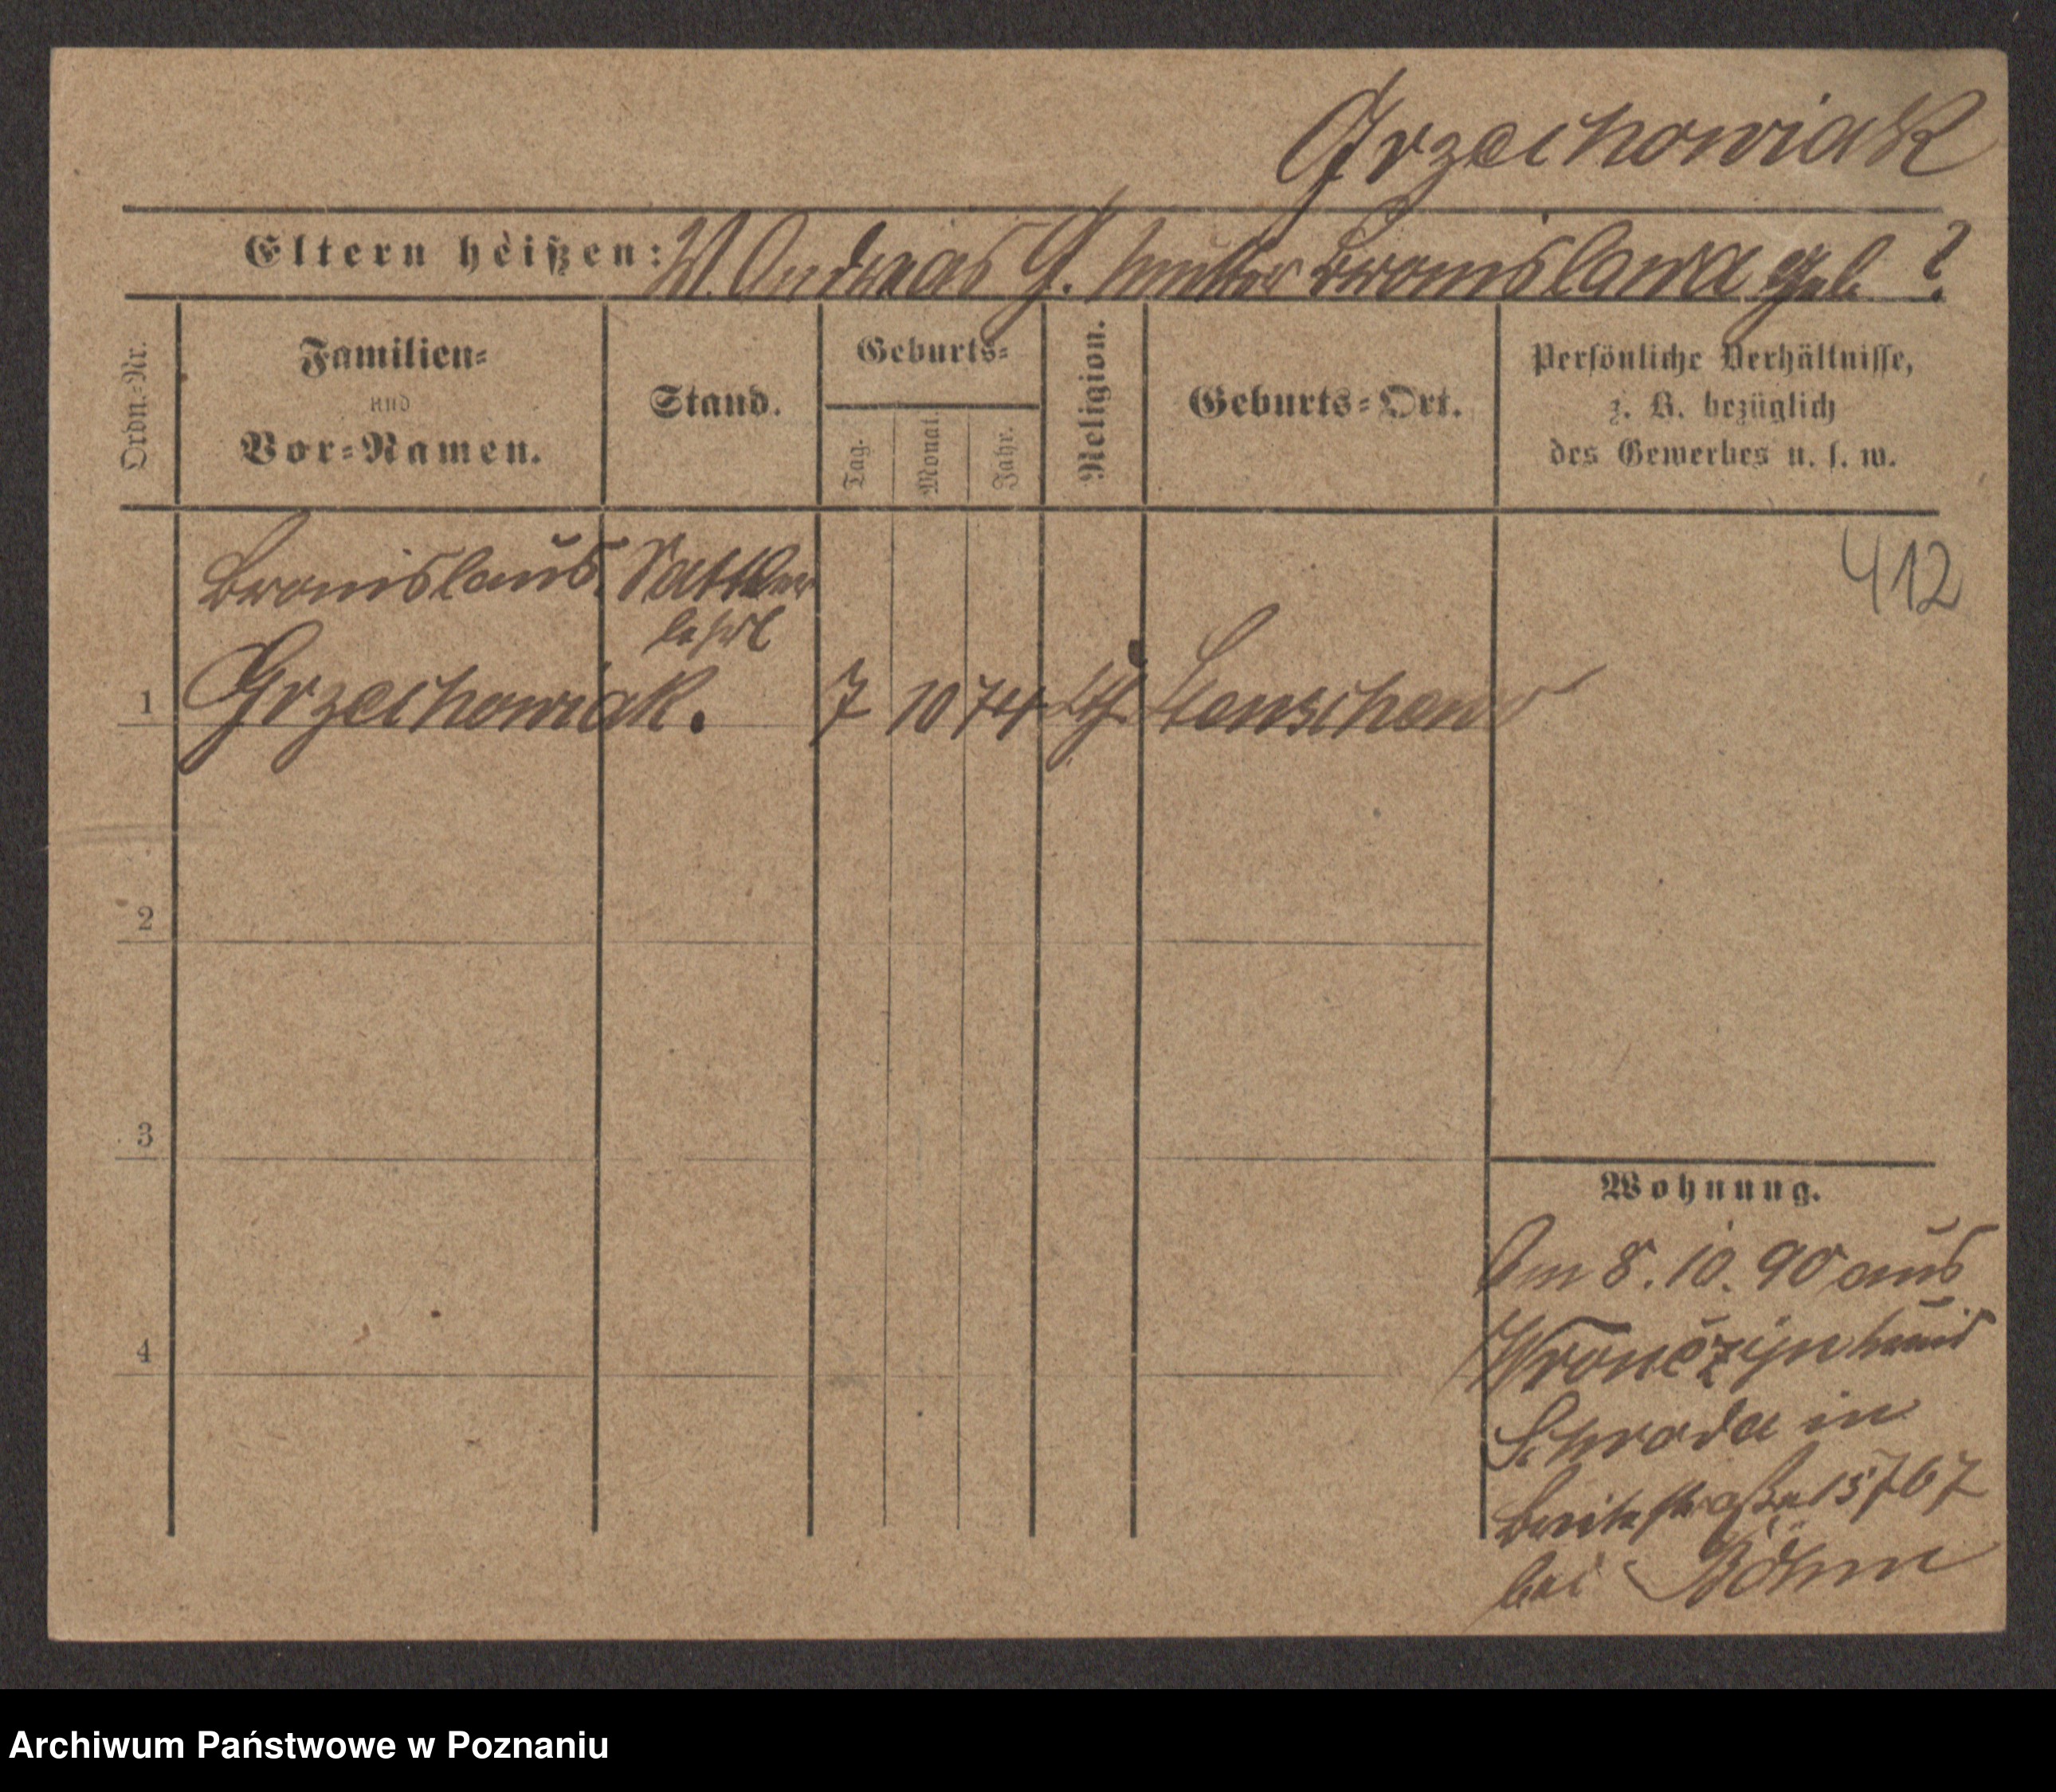 Grzechowiak
Eltern heißen: V. Andreas G. Mutter Bronislawa geb. ?
Ordn.-Nr.
Familien-
und
Vor-Namen.
Stand.
Geburts-
Tag.
Monat.
Jahr.
Religion.
Geburts-Ort.
Persönliche Verhältnisse,
z. B. bezüglich
des Gewerbes u. s. w.
412
Bronislaus Sattler
lehrl
1 Grzechowiak. 7 10 74
2
3
4
Wohnung.
Am 8. 10. 90 aus
Wronczyn
Schroda in
Breitestraße
bei Böhm
Archiwum Państwowe w Poznaniu